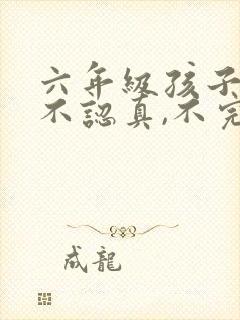 六年級孩子
不認真,不完
成龍